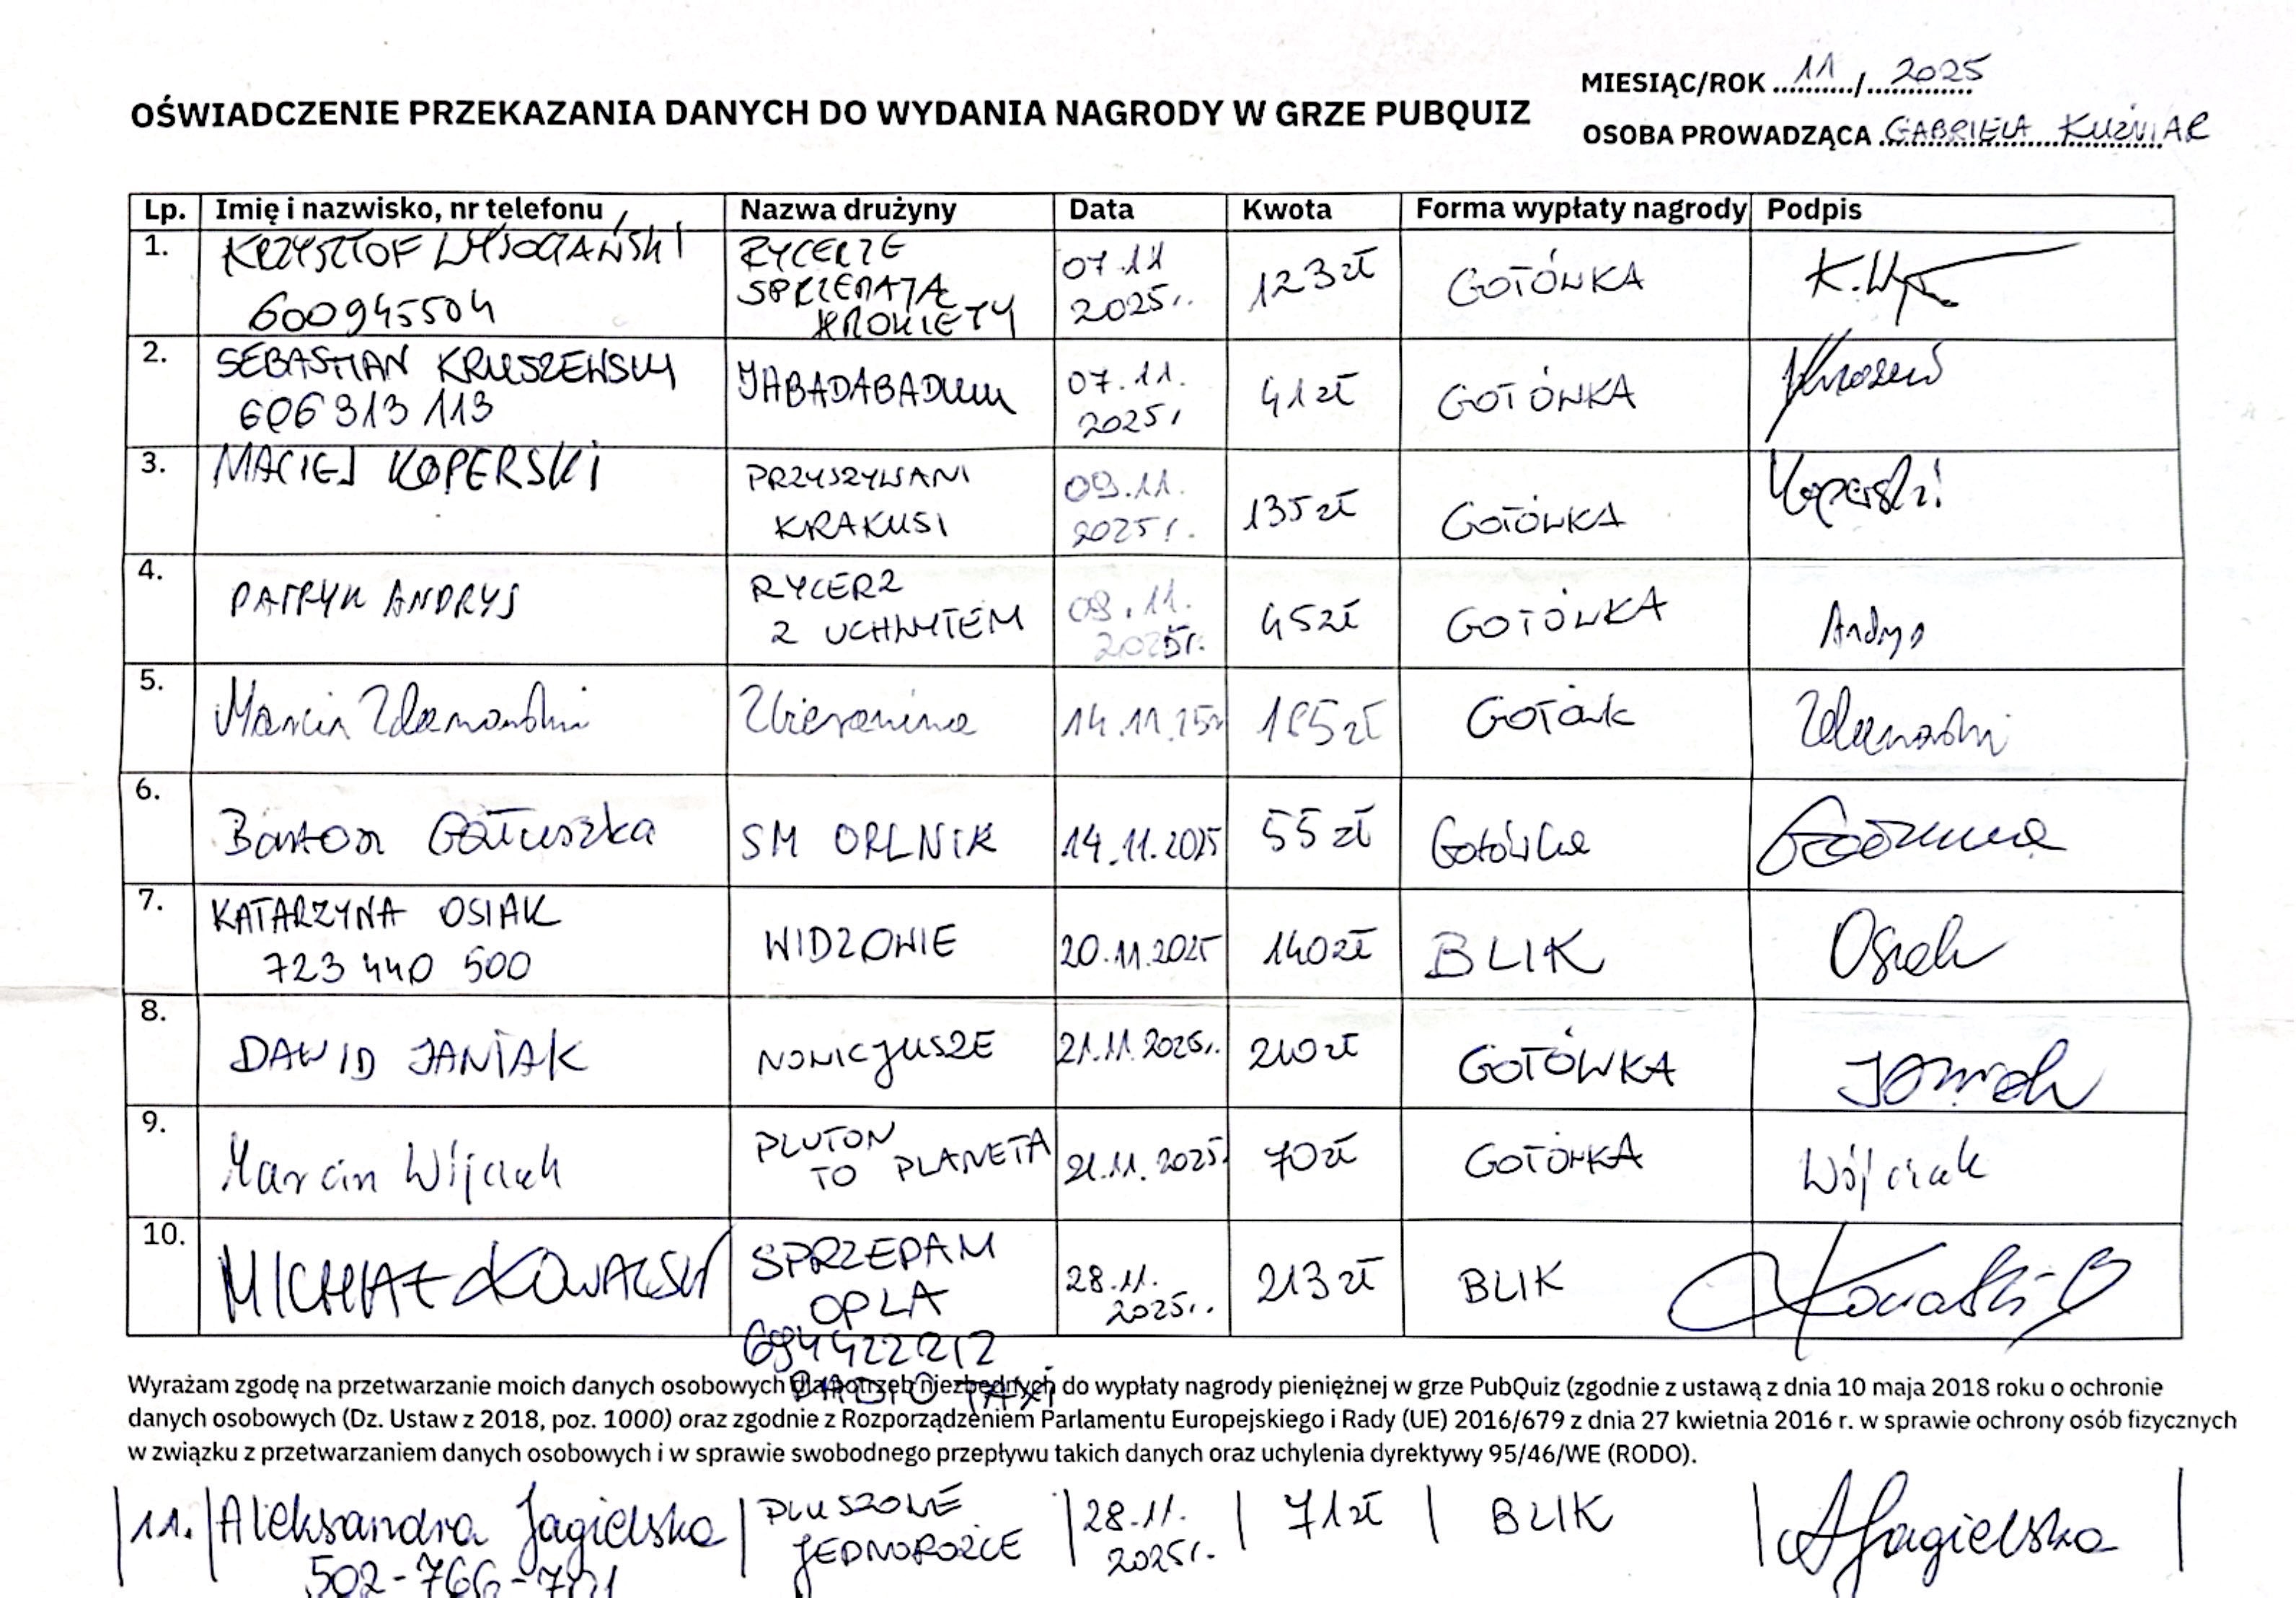 MIESIĄC/ROK 11 / 2025
OŚWIADCZENIE PRZEKAZANIA DANYCH DO WYDANIA NAGRODY W GRZE PUBQUIZ
OSOBA PROWADZĄCA GABRIELA KUŹNIAR
Lp. Imię i nazwisko, nr telefonu Nazwa drużyny Data Kwota Forma wypłaty nagrody Podpis
1. KRZYSZTOF WYSOCZAŃSKI
600945504
RYCERZE
SPRZEDAJĄ
KROKIETY
07.11
2025r.
123 zł GOTÓWKA K.Wys
2. SEBASTIAN KRUSZEWSKI
606 313 113
JABADABADUUU
07.11.
2025r
41 zł GOTÓWKA
3. MACIEJ KOPERSKI
PRZYSZYWANI
KRAKUSI
09.11.
2025r.
135 zł GOTÓWKA Koperski
4. PATRYK ANDRYS
RYCERZ
Z UCHWYTEM
09.11.
2025r.
45 zł GOTÓWKA Andrys
5. Marcin Zdanowski Zbieranina 14.11.25r zł Gotówk Zdanowski
6. Bartosz Gałuszka SM ORLNIK 14.11.2025 55 zł Gotówka
7. KATARZYNA OSIAK
723 440 500
WIDZOWIE 20.11.2025 140 zł BLIK Osiak
8. DAWID JANIAK NONICJUSZE 21.11.2025r. 210 zł GOTÓWKA Janiak
9. Marcin Wójciak
PLUTON
TO PLANETA
21.11.2025r. 70 zł GOTÓWKA Wójciak
10. MICHAŁ KOWALSKI
SPRZEDAM
OPLA
694422212
RADIO TAXI
28.11.
2025r.
213 zł BLIK Kowalski
Wyrażam zgodę na przetwarzanie moich danych osobowych dla potrzeb niezbędnych do wypłaty nagrody pieniężnej w grze PubQuiz (zgodnie z ustawą z dnia 10 maja 2018 roku o ochronie
danych osobowych (Dz. Ustaw z 2018, poz. 1000) oraz zgodnie z Rozporządzeniem Parlamentu Europejskiego i Rady (UE) 2016/679 z dnia 27 kwietnia 2016 r. w sprawie ochrony osób fizycznych
w związku z przetwarzaniem danych osobowych i w sprawie swobodnego przepływu takich danych oraz uchylenia dyrektywy 95/46/WE (RODO).
11. Aleksandra Jagielska
PLUSZOWE
JEDNOROŻCE
28.11.
2025r.
71 zł BLIK AJagielska